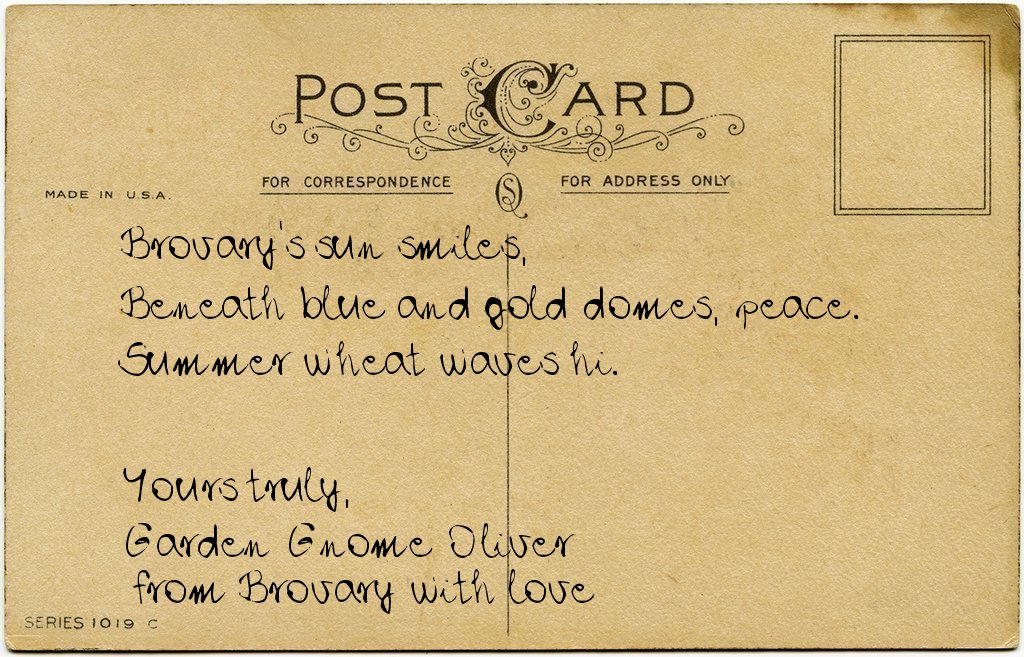 POST CARD
FOR CORRESPONDENCE
FOR ADDRESS ONLY
MADE IN U.S.A.
Brovary's sun smiles,
Beneath blue and gold domes, peace.
Summer wheat waves hi.
Yours truly,
Garden Gnome Oliver
from Brovary with love
SERIES 1019 C